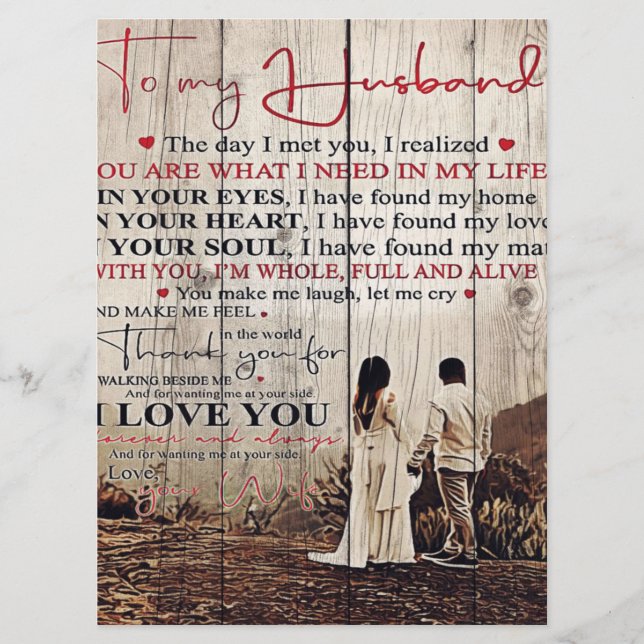 To my Husband
The day I met you, I realized
OU ARE WHAT I NEED IN MY LIFE
IN YOUR EYES, I have found my home
N YOUR HEART, I have found my love
YOUR SOUL, I have found my mat
WITH YOU, I'M WHOLE, FULL AND ALIVE
You make me laugh, let me cry
ND MAKE ME FEEL
in the world
Thank you for
WALKING BESIDE ME
And for wanting me at your side.
I LOVE YOU
forever and always,
And for wanting me at your side.
Love,
your Wife